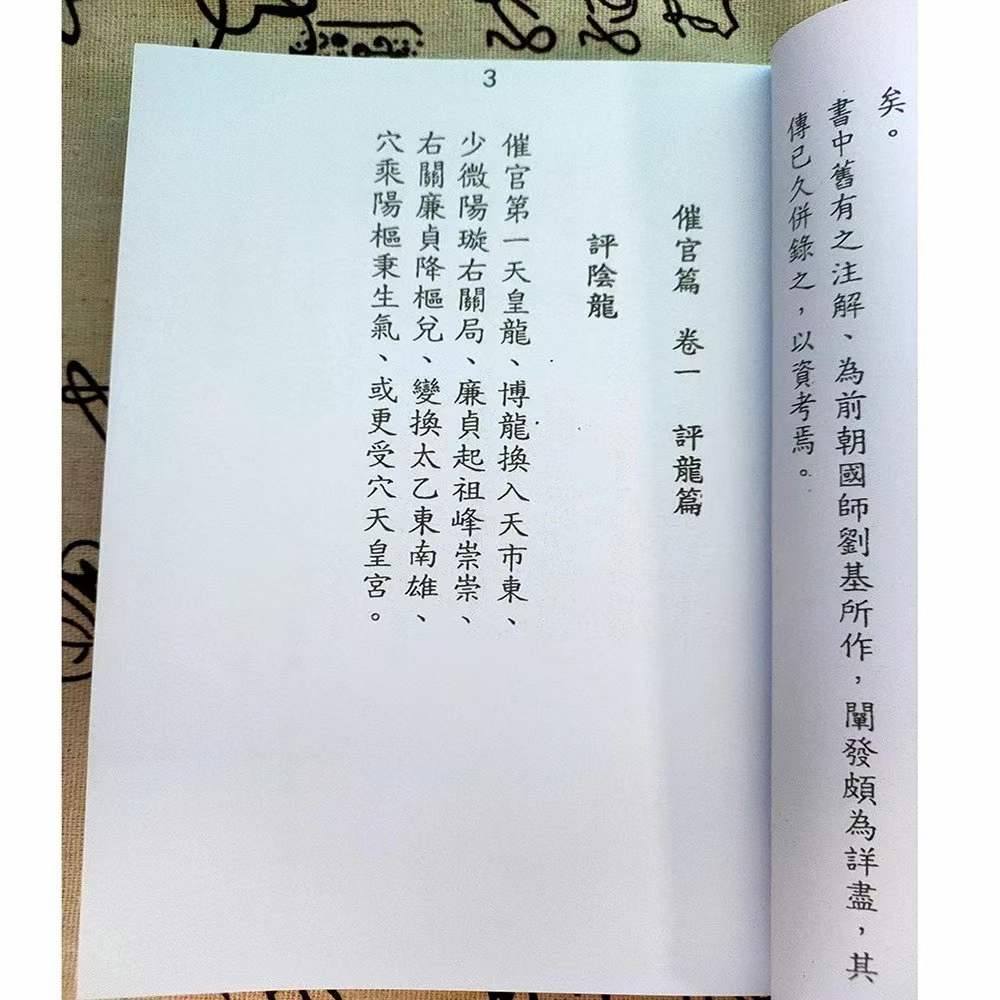 矣。
書中舊有之注解、為前朝國師劉基所作，闡發頗為詳盡，其
傳已久併錄之，以資考焉。
3
催官篇 卷一 評龍篇
評陰龍
催官第一天皇龍、博龍換入天市東、
少微陽璇右關局、廉貞起祖峰崇崇、
右關廉貞降樞兌、變換太乙東南雄、
穴乘陽樞秉生氣、或更受穴天皇宮。